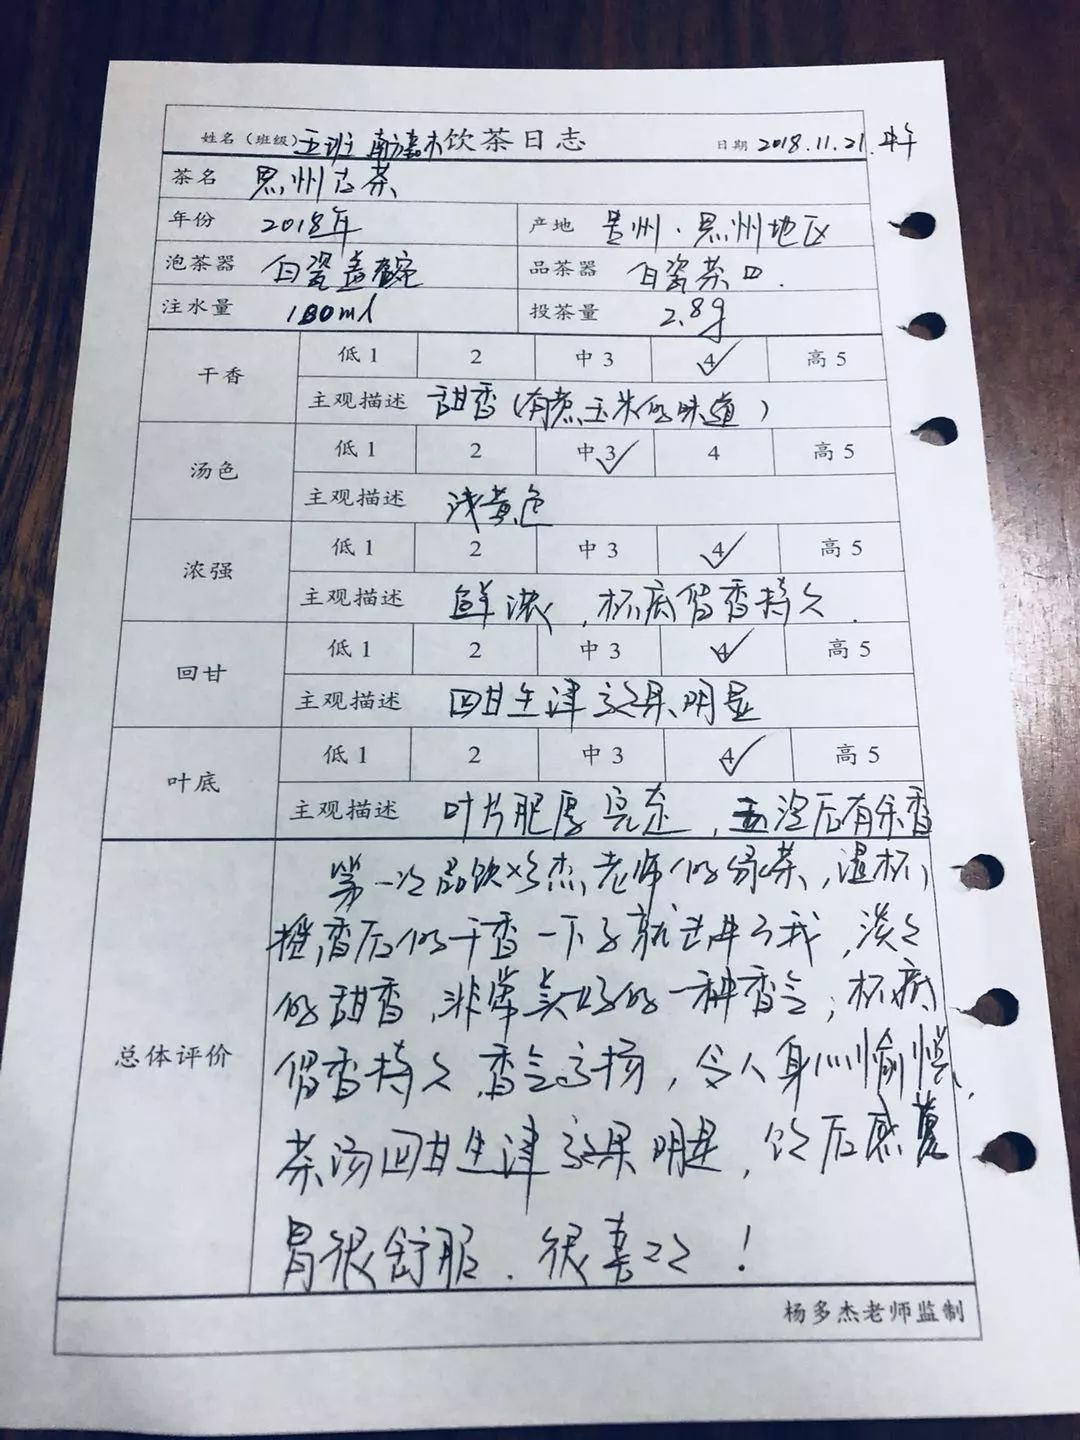 姓名（班级）五班 南方嘉木 饮茶日志 日期 2018.11.21.中午
茶名 思州古茶
年份 2018年 产地 贵州·思州地区
泡茶器 白瓷盖碗 品茶器 白瓷茶口.
注水量 180ml 投茶量 2.8g
干香 低1 2 中3 4✓ 高5
主观描述 甜香（有煮玉米的味道）
汤色 低1 2 中3✓ 4 高5
主观描述 浅黄色
浓强 低1 2 中3 4✓ 高5
主观描述 鲜浓，杯底留香持久.
回甘 低1 2 中3 4✓ 高5
主观描述 回甘生津效果明显
叶底 低1 2 中3 4✓ 高5
主观描述 叶片肥厚完整，五泡后有余香
总体评价
第一次品饮多杰老师的绿茶，温杯
摇香后的干香一下子就击中了我，淡之
的甜香，非常美好的一种香气；杯底
留香持久，香气高扬，令人身心愉悦，
茶汤回甘生津效果明显，饮后感觉
胃很舒服．很喜欢！
杨多杰老师监制